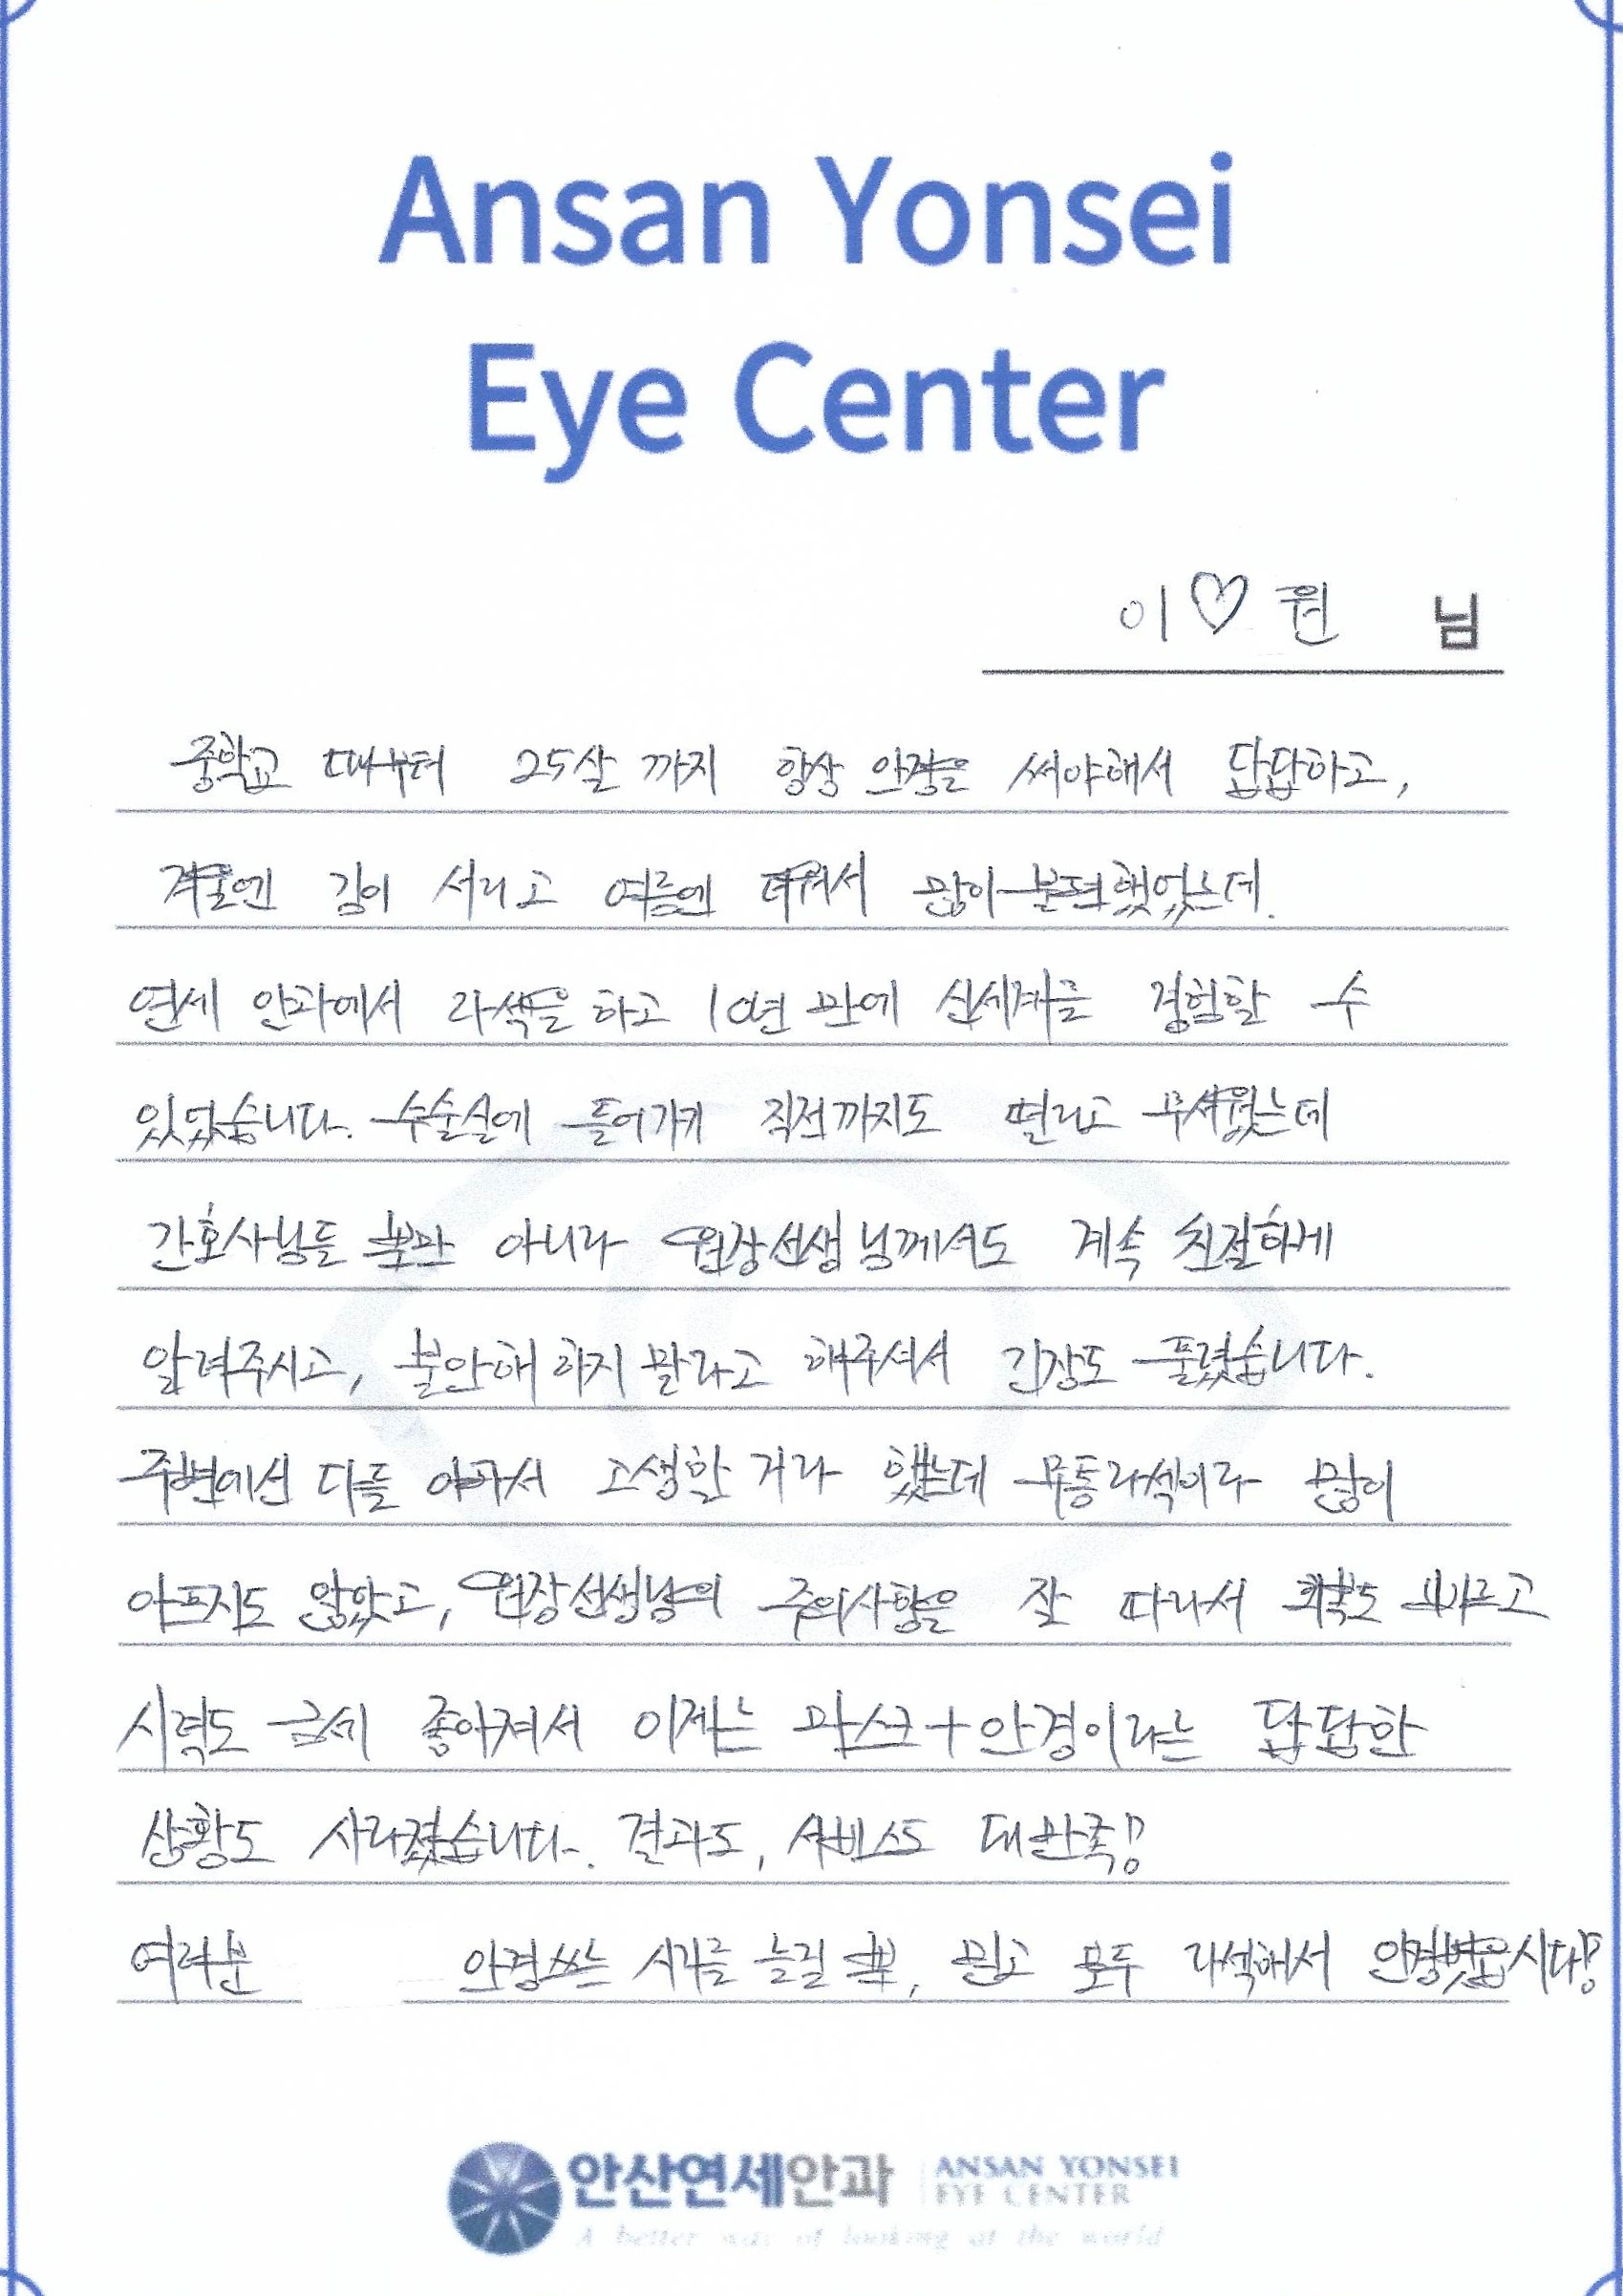 Ansan Yonsei
Eye Center
이♡원 님
중학교 때부터 25살 까지 항상 안경을 써야해서 답답하고,
겨울엔 김이 서리고 여름엔 더워서 많이 불편했었는데.
연세 안과에서 라섹을 하고 10년 만에 신세계를 경험할 수
있었습니다. 수술실에 들어가기 직전까지도 떨리고 무서웠는데
간호사님들 뿐만 아니라 원장선생님께서도 계속 친절하게
알려주시고, 불안해 하지 말라고 해주셔서 긴장도 풀렸습니다.
주변에선 다들 아파서 고생할 거라 했는데 무통라섹이라 많이
아프지도 않았고, 원장선생님의 주의사항을 잘 따라서 회복도 빠르고
시력도 금세 좋아져서 이제는 마스크+안경이라는 답답한
상황도 사라졌습니다. 결과도, 서비스도 대만족!!
여러분 안경쓰는 시간을 늘릴 뿐, 믿고 모두 라섹해서 안경벗읍시다!!
안산연세안과 ANSAN YONSEI
EYE CENTER
A better way of looking at the world